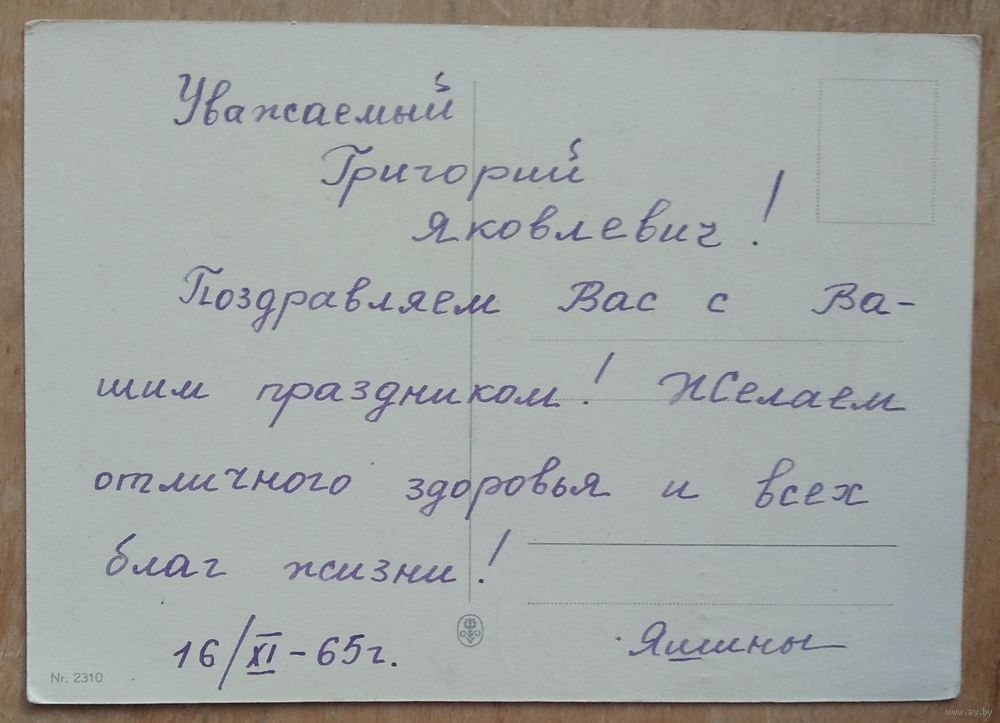 Уважаемый
Григорий
Яковлевич!
Поздравляем Вас с Ва-
шим праздником! Желаем
отличного здоровья и всех
благ жизни!
16/XI-65г.
Яшины
Nr. 2310
www.ay.by